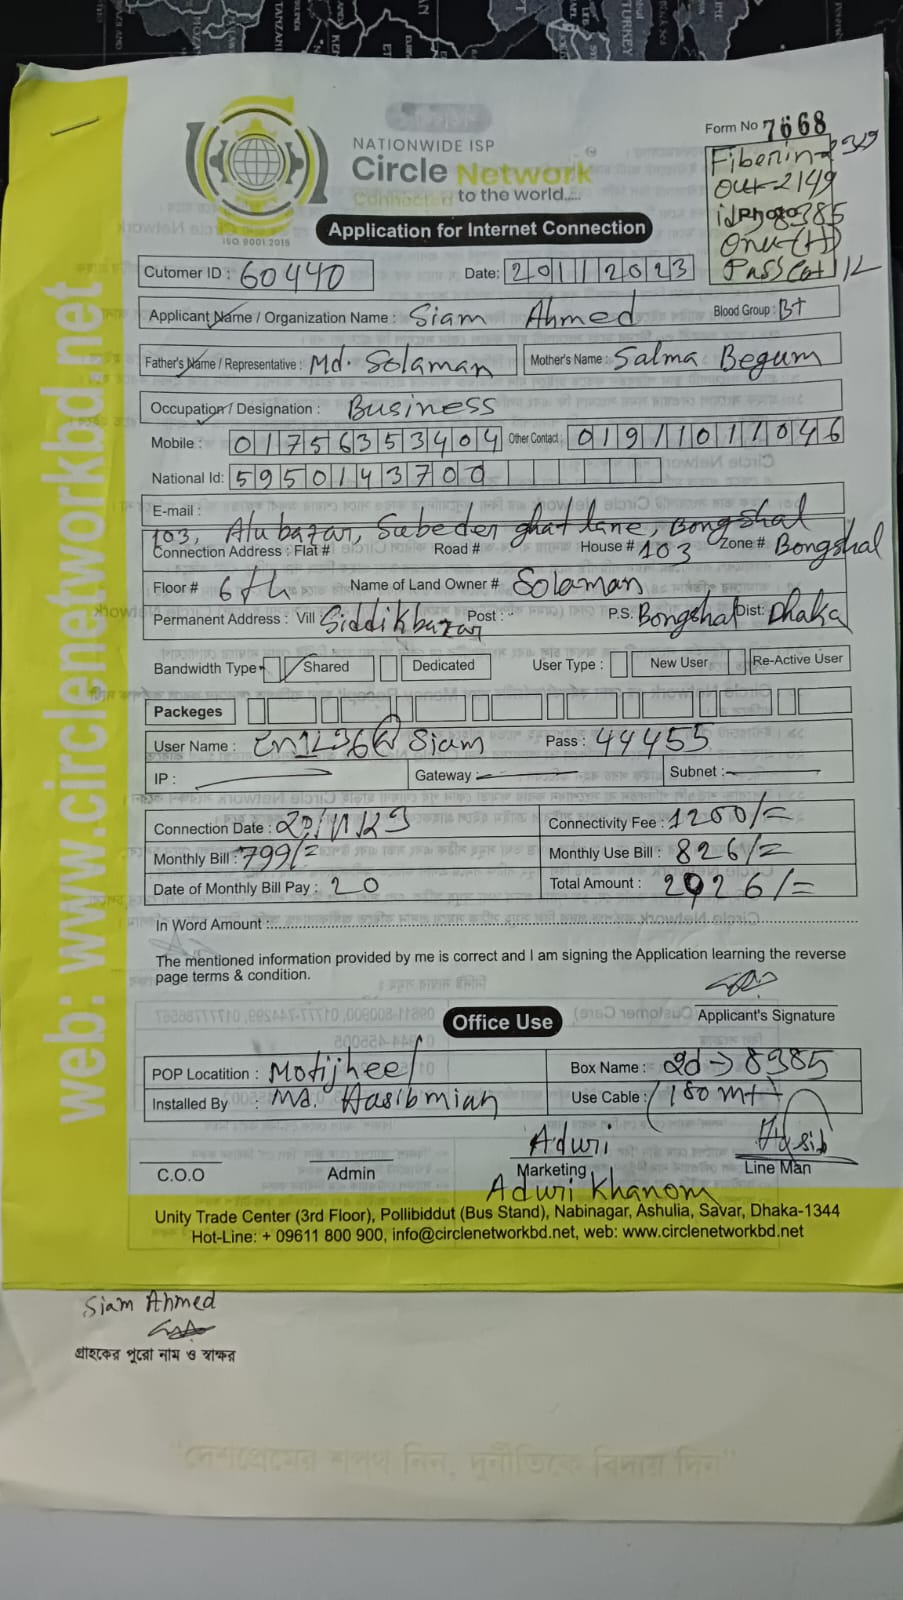 Form No 7668
NATIONWIDE ISP
Circle Network
Connected to the world.....
ISO 9001:2015
Application for Internet Connection
Out-2149
Cutomer ID : 60440
Date: 20112023
Applicant Name / Organization Name : Siam Ahmed Blood Group : B+
Father's Name / Representative : Md. Solaman Mother's Name : Salma Begum
Occupation / Designation : Business
Mobile : 01756353404 Other Contact : 01911017046
National Id: 5950143700
E-mail :
103, Alubazar, Subeder ghat lane, Bongshal
Connection Address : Flat # Road # House # 103 Zone # Bongshal
Floor # 6th Name of Land Owner # Solaman
Permanent Address : Vill Siddikbazar Post : P.S: Bongshal Dist: Dhaka
Bandwidth Type Shared Dedicated User Type : New User Re-Active User
Packeges
User Name : Siam Pass : 44455
IP : Gateway Subnet :
Connection Date : Connectivity Fee : 1200/=
Monthly Bill : 799/= Monthly Use Bill : 826/=
Date of Monthly Bill Pay : 20 Total Amount : 2026/=
In Word Amount :
The mentioned information provided by me is correct and I am signing the Application learning the reverse
page terms & condition.
Applicant's Signature
Office Use
POP Locatition : Motijheel Box Name : 8985
Installed By : Md. Hasib miah Use Cable : 180 mt
Aduri Hasib
C.O.O Admin Marketing Line Man
Aduri Khanom
Unity Trade Center (3rd Floor), Pollibiddut (Bus Stand), Nabinagar, Ashulia, Savar, Dhaka-1344
Hot-Line: + 09611 800 900, info@circlenetworkbd.net, web: www.circlenetworkbd.net
web: www.circlenetworkbd.net
Siam Ahmed
গ্রাহকের পুরো নাম ও স্বাক্ষর
"দেশপ্রেমের শপথ নিন, দুর্নীতিকে বিদায় দিন"